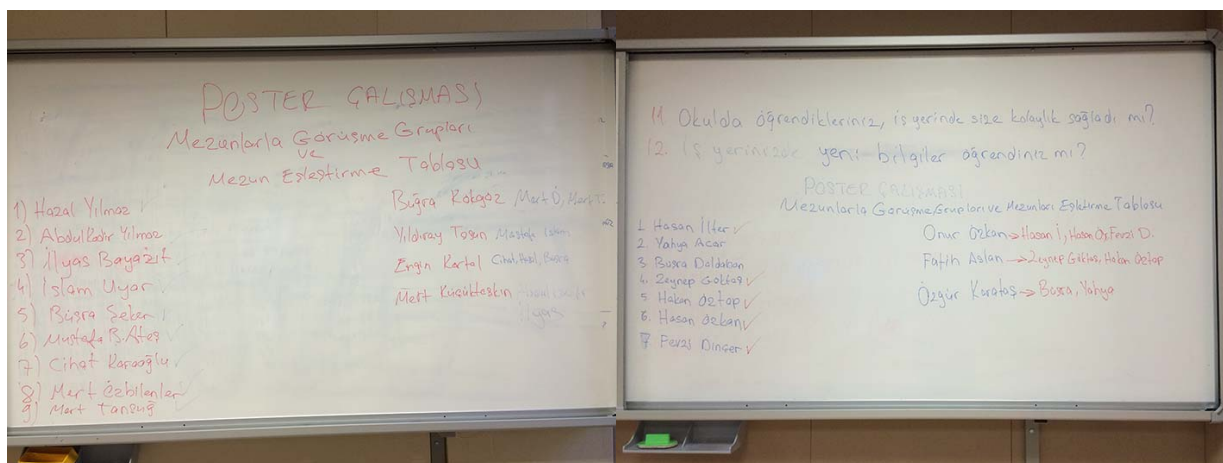 POSTER ÇALIŞMASI
Mezunlarla Görüşme Grupları
ve
Mezun Eşleştirme Tablosu
1) Hazal Yılmaz
2) Abdulkadir Yılmaz
3) İlyas Bayazıt
4) İslam Uyar
5) Büşra Şeker
6) Mustafa B. Ateş
7) Cihat Karaoğlu
8) Mert Özbilenler
9) Mert Tansuğ
Buğra Kokgöz Mert Ö, Mert T.
Yıldıray Tosun Mustafa İslam
Engin Kartal Cihat, Hazal, Büşra
Mert Küçüktaşkın
İlyas
11. Okulda öğrendikleriniz, iş yerinde size kolaylık sağladı mı?
12. İş yerinizde yeni bilgiler öğrendiniz mi?
POSTER ÇALIŞMASI
Mezunlarla Görüşme Grupları ve Mezunları Eşleştirme Tablosu
1. Hasan İlter
2. Yahya Acar
3. Büşra Daldaban
4. Zeynep Göktaş
5. Hakan Öztop
6. Hasan Özkan
7 Fevzi Dinçer
Onur Özkan → Hasan İ, Hasan Öz, Fevzi D.
Fatih Aslan → Zeynep Göktaş, Hakan Öztop
Özgür Karataş → Büşra, Yahya